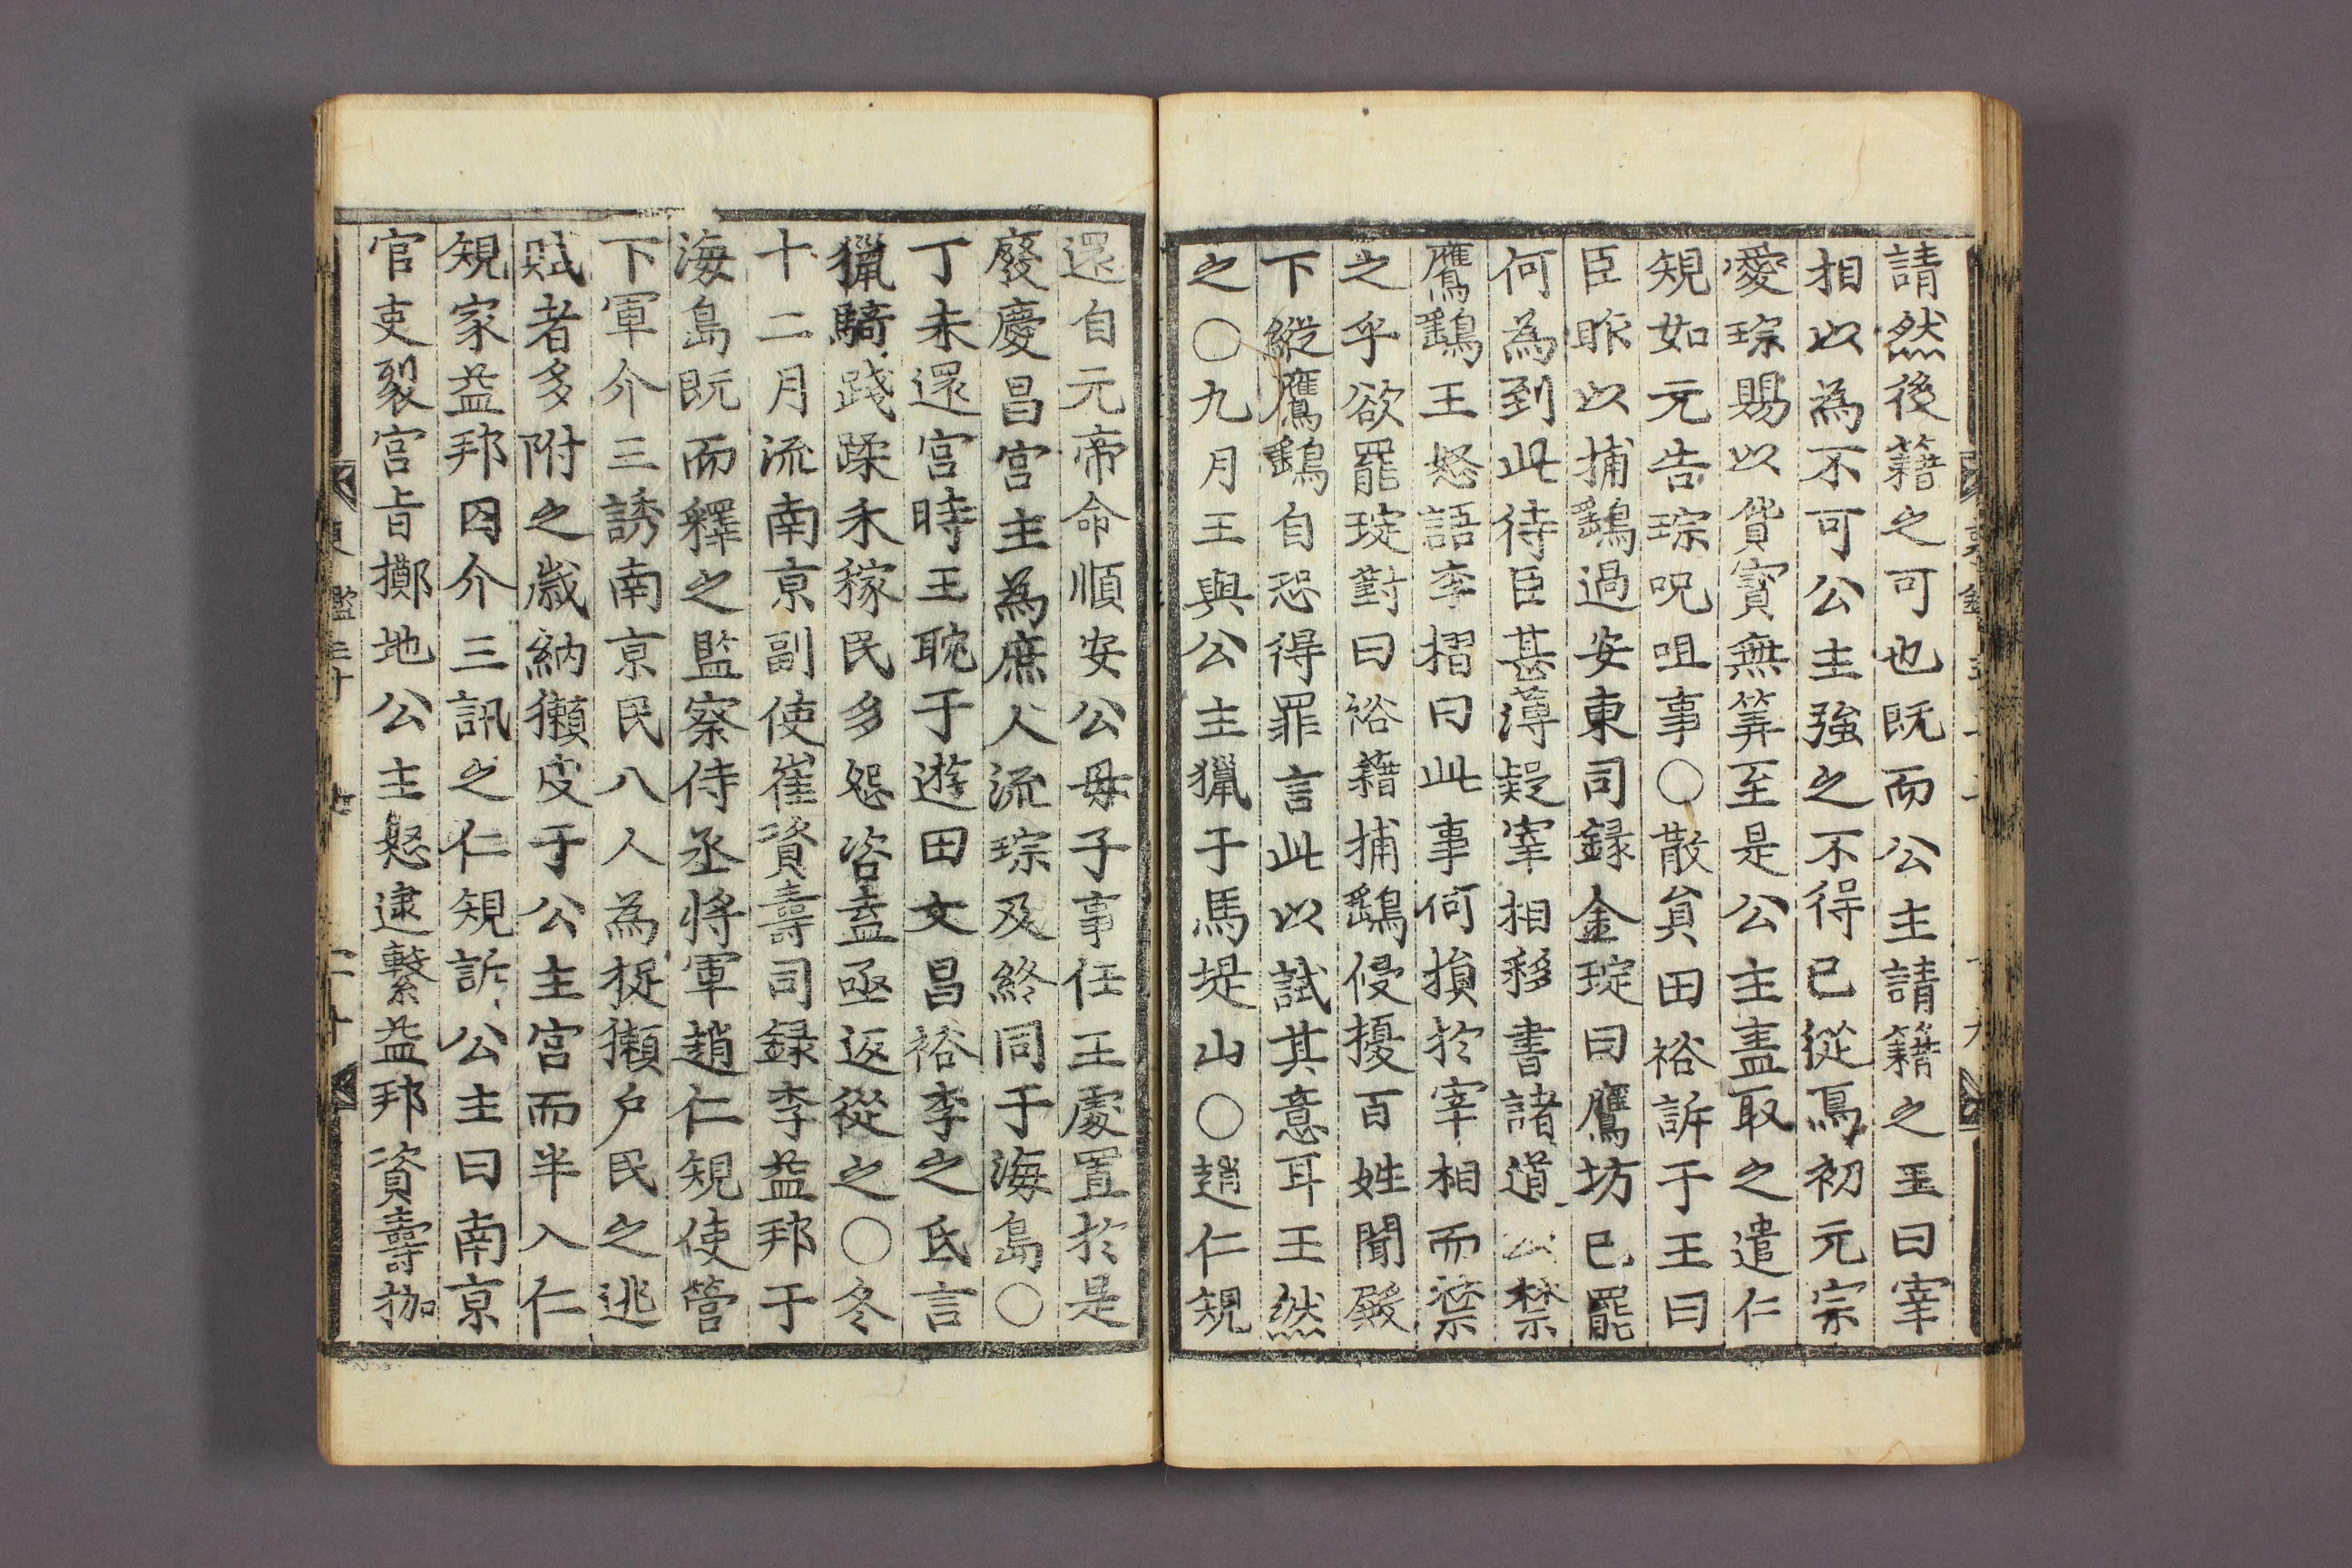 請然後籍之可也既而公主請籍之王曰宰
相以為不可公主強之不得已從焉初元宗
愛琮賜以貨寳無筭至是公主盡取之遣仁
規如元告琮呪咀事○散貟田裕訴于王曰
臣昨以捕鷂過安東司録金琔曰鷹坊已罷
何為到此待臣甚薄疑宰相移書諸道以禁
鷹鷂王怒語李槢曰此事何損於宰相而禁
之乎欲罷琔對曰裕籍捕鷂侵擾百姓聞殿
下縱鷹鷂自恐得罪言此以試其意耳王然
之○九月王與公主獵于馬堤山○趙仁規
還自元帝命順安公母子事任王處置於是
廢慶昌宫主為庶人流琮及終同于海島○
丁未還宫時王耽于遊田文昌裕李之氐言
獵騎踐蹂禾稼民多怨咨盍亟返從之○冬
十二月流南京副使崔資壽司録李益邦于
海島既而釋之監察侍丞將軍趙仁規使營
下軍介三誘南京民八人為捉獺户民之逃
賦者多附之歲納獺皮于公主宫而半入仁
規家益邦囚介三訊之仁規訴公主曰南京
官吏裂宫旨擲地公主怒逮繫益邦資壽枷